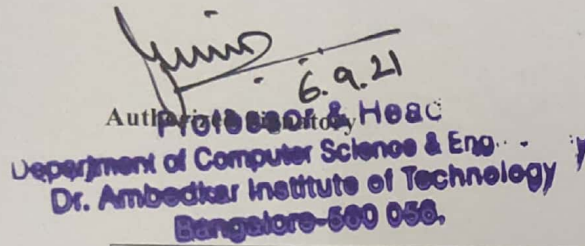 6.9.21
Authorized Signatory
Professor & Head
Department of Computer Science & Eng
Dr. Ambedkar Institute of Technology
Bangalore-560 056.